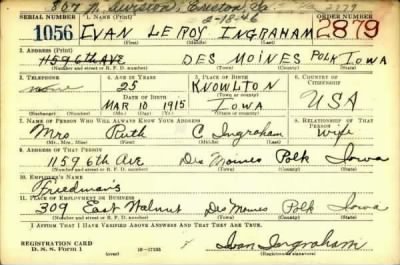 807 N. Division, Creston, Ia
2-18-46 2879
SERIAL NUMBER 1. NAME (Print) ORDER NUMBER
1056 EVAN LEROY INGRAHAM 2879
(First) (Middle) (Last)
2. ADDRESS (Print)
1159 6th AVE DES MOINES POLK IOWA
(Number and street or R. F. D. number) (Town) (County) (State)
3. TELEPHONE 4. AGE IN YEARS 5. PLACE OF BIRTH 6. COUNTRY OF CITIZENSHIP
none 25 KNOWLTON
DATE OF BIRTH (Town or county) USA
MAR 10 1915 IOWA
(Exchange) (Number) (Mo.) (Day) (Yr.) (State or country)
7. NAME OF PERSON WHO WILL ALWAYS KNOW YOUR ADDRESS 8. RELATIONSHIP OF THAT PERSON
Mrs Ruth C Ingraham Wife
(Mr., Mrs., Miss) (First) (Middle) (Last)
9. ADDRESS OF THAT PERSON
1159 6th Ave Des Moines Polk Iowa
(Number and street or R. F. D. number) (Town) (County) (State)
10. EMPLOYER'S NAME
Friedman's
11. PLACE OF EMPLOYMENT OR BUSINESS
309 East Walnut Des Moines Polk Iowa
(Number and street or R. F. D. number) (Town) (County) (State)
I AFFIRM THAT I HAVE VERIFIED ABOVE ANSWERS AND THAT THEY ARE TRUE.
REGISTRATION CARD
D. S. S. Form 1 (over) 16-17105 Evan Ingraham
(Registrant's signature)